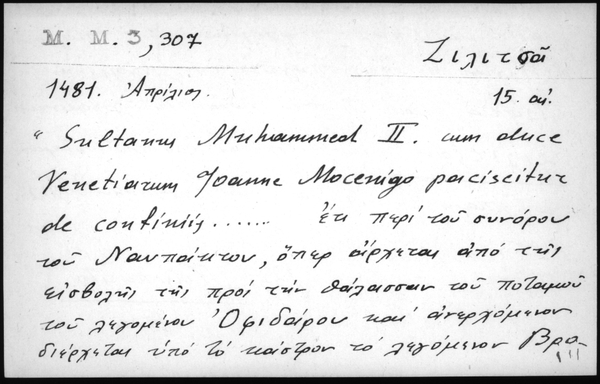 M. M. 3, 307
Ζιλιτσᾶ
1481. Ἀπρίλιος.
15. αἰ.
" Sultanus Muhammed II. cum duce
Venetiarum Joanne Mocenigo paciscitur
de confiniis....... ἔτι περί τοῦ συνόρου
τοῦ Ναυπάκτου, ὅπερ ἄρχεται ἀπό τῆς
εἰσβολῆς τῆς πρός τήν θάλασσαν τοῦ ποταμοῦ
τοῦ λεγομένου Ὀφιδάρου καί ἀνερχόμενον
διέρχεται ὑπό τό κάστρον τό λεγόμενον Βρα-